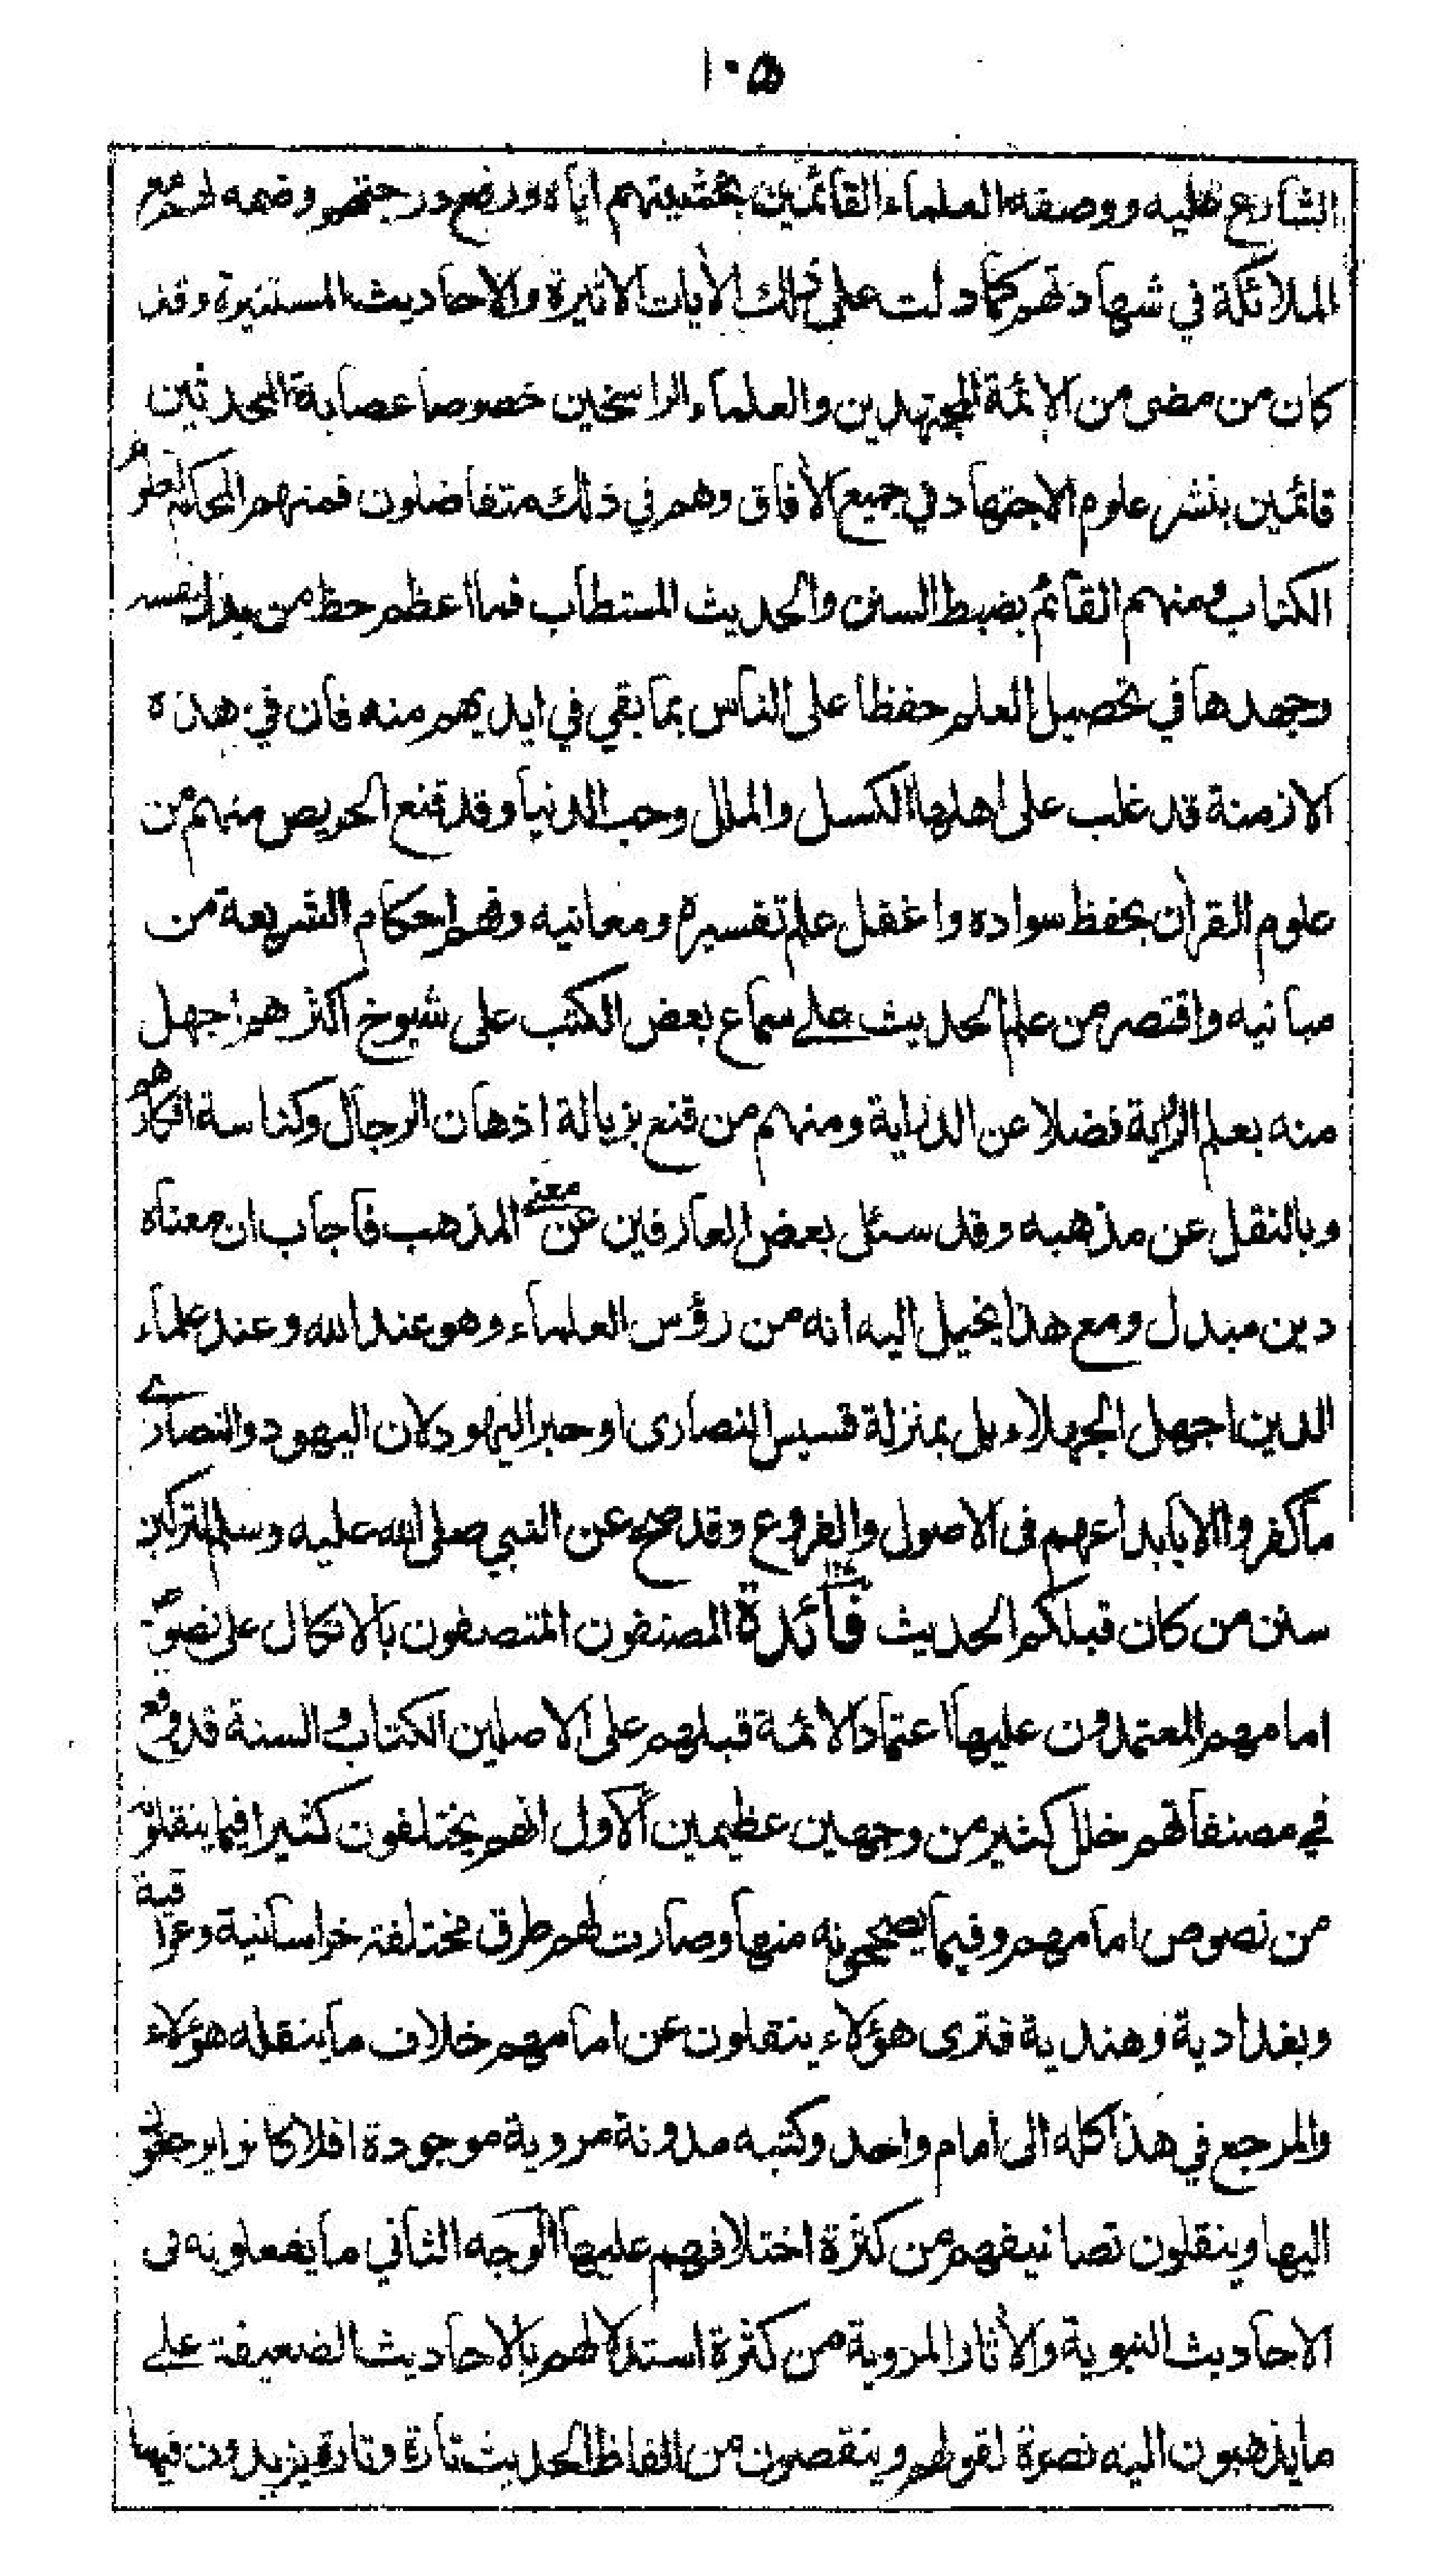 ١٠٥
الشارع عليه ووصفه العلماء القائمين بخشيتهم اياه ورفع درجتهم وضمه لهم مع
الملائكة في شهادتهم كما دلت على ذلك الأيات الاثيرة والاحاديث المستنيرة وقد
كان من مضى من الائمة المجتهدين والعلماء الراسخين خصوصا عصابة المحدثين
قائمين بنشر علوم الاجتهاد في جميع الأفاق وهم في ذلك متفاضلون فمنهم المحكم لعلوم
الكتاب ومنهم القائم بضبط السنن والحديث المستطاب فما اعظم حظ من بذل نفسه
وجهدها في تحصيل العلم حفظا على الناس بما بقي في ايديهم منه فان في هذه
الازمنة قد غلب على اهلها الكسل والملل وحب الدنيا وقد قنع الحريص منهم من
علوم القرأن بحفظ سواده واغفل علم تفسيره ومعانيه وفهم احكام الشريعة من
مبانيه واقتصر من علم الحديث على سماع بعض الكتب على شيوخ اكثرهم اجهل
منه بعلم الرواية فضلا عن الدراية ومنهم من قنع بزبالة اذهان الرجال وكناسة افكارهم
وبالنقل عن مذهبه وقد سئل بعض العارفين عن معنى المذهب فاجاب ان معناه
دين مبدل ومع هذا يخيل اليه انه من رؤس العلماء وهو عند الله وعند علماء
الدين اجهل الجهلاء بل بمنزلة قسيس النصارى او حبر اليهود لان اليهود والنصارى
ما كفروا الا بابتداعهم فى الاصول والفروع وقد صح عن النبي صلى الله عليه وسلم لتركبن
سنن من كان قبلكم الحديث فائدة المصنفون المتصفون بالاتكال على نصوص
امامهم المعتمدون عليها اعتماد الائمة قبلهم على الاصلين الكتاب والسنة قد وقع
في مصنفاتهم خلل كثير من وجهين عظيمين الأول انهم يختلفون كثيرا فيما ينقلونه
من نصوص امامهم وفيما يصححونه منها وصارت لهم طرق مختلفة خراسانية وعراقية
وبغدادية وهندية فترى هؤلاء ينقلون عن امامهم خلاف ما ينقله هؤلاء
والمرجع في هذا كله الى امام واحد وكتبه مدونة مروية موجودة افلا كانوا يرجعون
اليها وينقلون تصانيفهم من كثرة اختلافهم عليها الوجه الثاني ما يفعلونه فى
الاحاديث النبوية والأثار المروية من كثرة استدلالهم بالاحاديث الضعيفة على
ما يذهبون اليه نصرة لقولهم وينقصون من الفاظ الحديث تارة وتارة يزيدون فيها